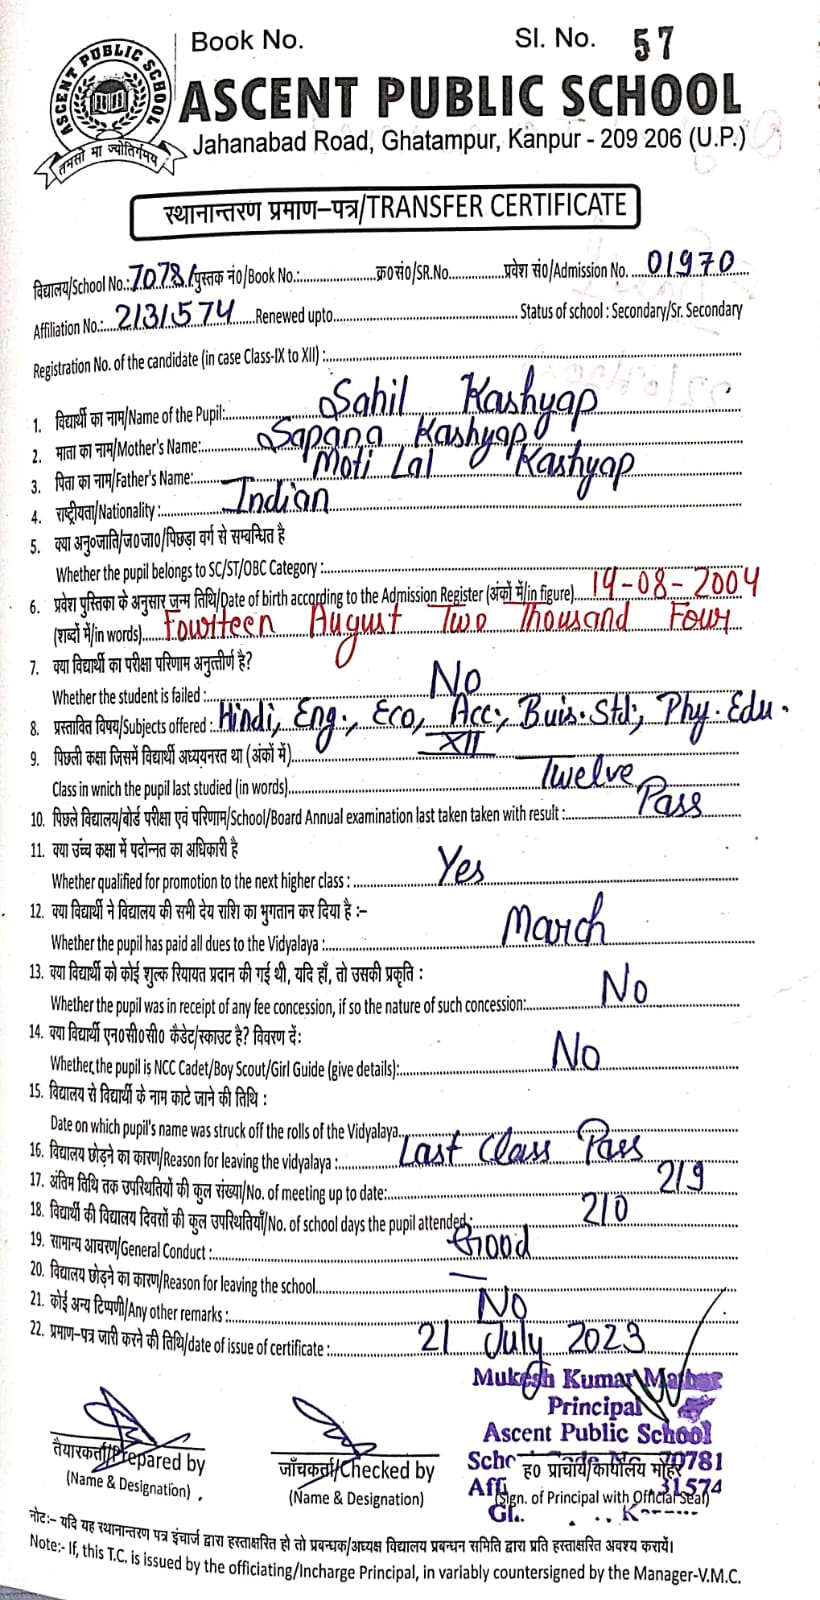 Book No. Sl. No. 57
ASCENT PUBLIC SCHOOL
तमसो मा ज्योतिर्गमय
ASCENT PUBLIC SCHOOL
Jahanabad Road, Ghatampur, Kanpur - 209 206 (U.P.)
स्थानान्तरण प्रमाण-पत्र/TRANSFER CERTIFICATE
विद्यालय/School No.: 70781 पुस्तक नं०/Book No.:..........क्र०सं०/SR.No..........प्रवेश सं०/Admission No. 01970
Affiliation No.: 2131574 Renewed upto.......... Status of school : Secondary/Sr. Secondary
Registration No. of the candidate (in case Class-IX to XII) :..........
1. विद्यार्थी का नाम/Name of the Pupil: Sahil Kashyap
2. माता का नाम/Mother's Name: Sapana Kashyap
3. पिता का नाम/Father's Name: Moti Lal Kashyap
4. राष्ट्रीयता/Nationality : Indian
5. क्या अनु०जाति/ज०जा०/पिछड़ा वर्ग से सम्बन्धित है
Whether the pupil belongs to SC/ST/OBC Category :..........
6. प्रवेश पुस्तिका के अनुसार जन्म तिथि/Date of birth according to the Admission Register (अंकों में/in figure) 14-08-2004
(शब्दों में/in words) Fourteen August Two Thousand Four
7. क्या विद्यार्थी का परीक्षा परिणाम अनुत्तीर्ण है?
Whether the student is failed : No
8. प्रस्तावित विषय/Subjects offered : Hindi, Eng., Eco, Acc., Buis. Std., Phy. Edu.
9. पिछली कक्षा जिसमें विद्यार्थी अध्ययनरत था (अंकों में) XII
Class in wnich the pupil last studied (in words) Twelve
10. पिछले विद्यालय/बोर्ड परीक्षा एवं परिणाम/School/Board Annual examination last taken taken with result : Pass
11. क्या उच्च कक्षा में पदोन्नत का अधिकारी है
Whether qualified for promotion to the next higher class : Yes
12. क्या विद्यार्थी ने विद्यालय की सभी देय राशि का भुगतान कर दिया है :-
Whether the pupil has paid all dues to the Vidyalaya : March
13. क्या विद्यार्थी को कोई शुल्क रियायत प्रदान की गई थी, यदि हाँ, तो उसकी प्रकृति :
Whether the pupil was in receipt of any fee concession, if so the nature of such concession: No
14. क्या विद्यार्थी एन०सी०सी० कैडेट/स्काउट है? विवरण दें:
Whether the pupil is NCC Cadet/Boy Scout/Girl Guide (give details): No
15. विद्यालय से विद्यार्थी के नाम काटे जाने की तिथि :
Date on which pupil's name was struck off the rolls of the Vidyalaya..........
16. विद्यालय छोड़ने का कारण/Reason for leaving the vidyalaya : Last Class Pass
17. अंतिम तिथि तक उपस्थितियों की कुल संख्या/No. of meeting up to date: 219
18. विद्यार्थी की विद्यालय दिवसों की कुल उपस्थितियाँ/No. of school days the pupil attended : 210
19. सामान्य आचरण/General Conduct : Good
20. विद्यालय छोड़ने का कारण/Reason for leaving the school.......... —
21. कोई अन्य टिप्पणी/Any other remarks : No
22. प्रमाण-पत्र जारी करने की तिथि/date of issue of certificate : 21 July 2023
Mukesh Kumar
Principal
Ascent Public School
70781
31574
तैयारकर्ता/Prepared by
(Name & Designation)
जाँचकर्ता/Checked by
(Name & Designation)
ह० प्राचार्य/कार्यालय मोहर
(Sign. of Principal with Official Seal)
नोट:- यदि यह स्थानान्तरण पत्र इंचार्ज द्वारा हस्ताक्षरित हो तो प्रबन्धक/अध्यक्ष विद्यालय प्रबन्धन समिति द्वारा प्रति हस्ताक्षरित अवश्य करायें।
Note:- If, this T.C. is issued by the officiating/Incharge Principal, in variably countersigned by the Manager-V.M.C.